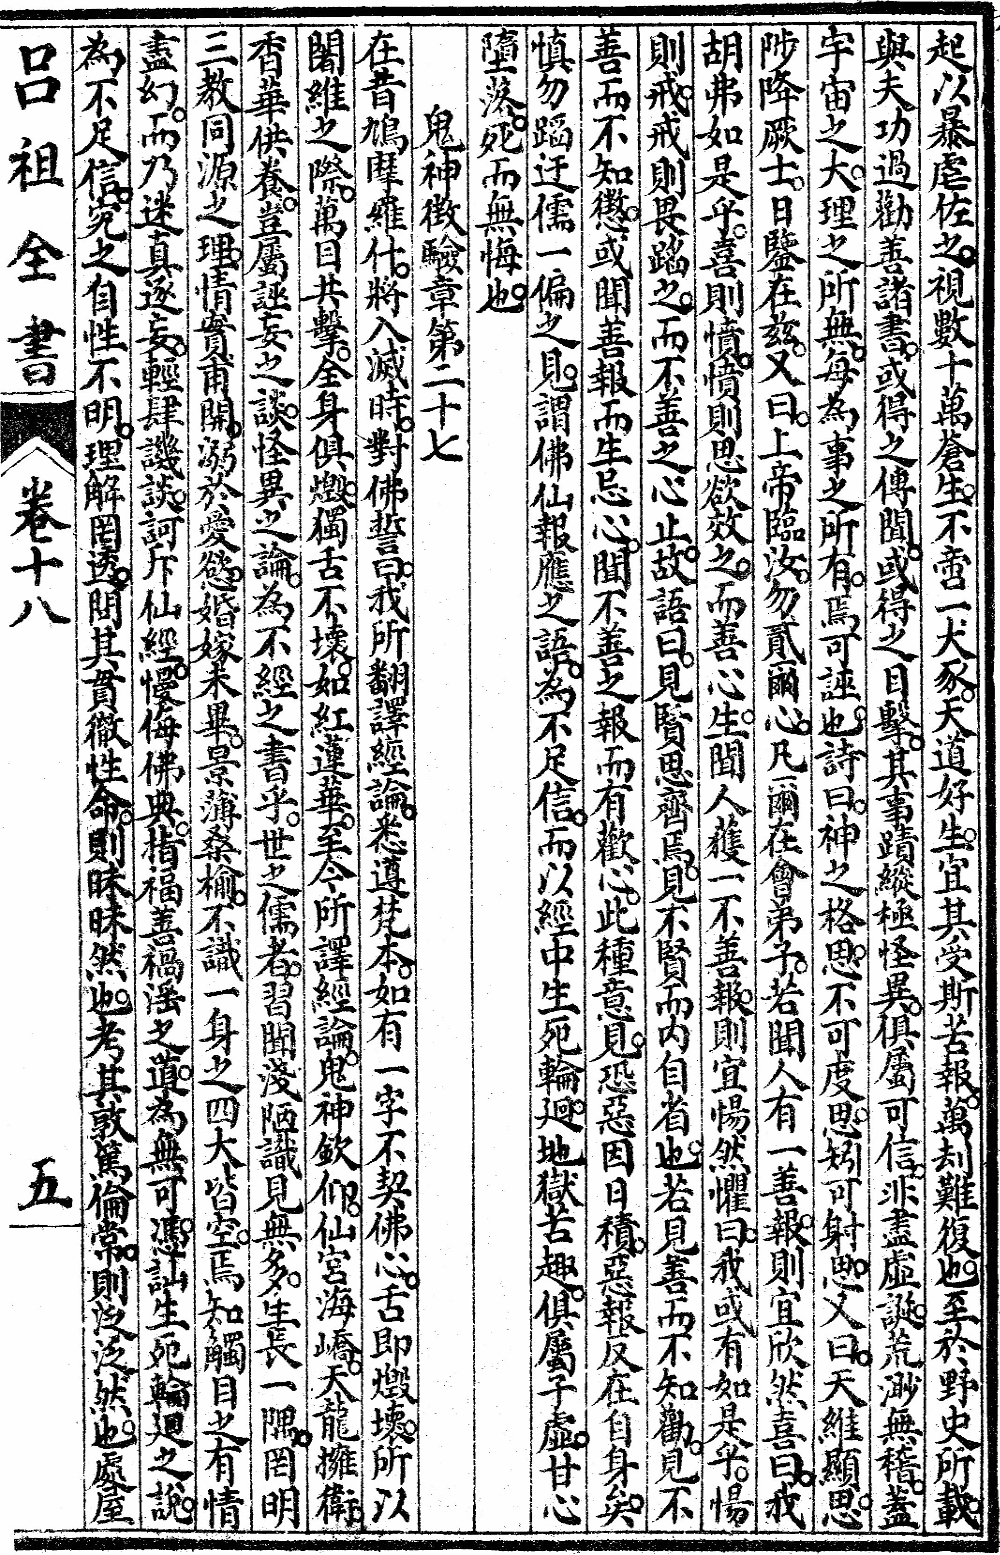 起以暴虐佐之視數十萬蒼生不啻一犬豕天道好生宜其受斯苦報萬刦難復也至於野史所載
與夫功過勸善諸書或得之傳聞或得之目擊其事蹟縱極怪異俱屬可信非盡虛誕荒渺無稽蓋
宇宙之大理之所無每為事之所有焉可誣也詩曰神之格思不可度思矧可射思又曰天維顯思
陟降厥士日鑒在茲又曰上帝臨汝勿貳爾心凡爾在會弟子若聞人有一善報則宜欣然喜曰我
胡弗如是乎喜則憤憤則思欲效之而善心生聞人獲一不善報則宜惕然懼曰我或有如是乎惕
則戒戒則畏蹈之而不善之心止故語曰見賢思齊焉見不賢而內自省也若見善而不知勸見不
善而不知懲或聞善報而生忌心聞不善之報而有歡心此種意見恐惡因日積惡報反在自身矣
慎勿蹈迂儒一偏之見謂佛仙報應之語為不足信而以經中生死輪迴地獄苦趣俱屬子虛甘心
墮落死而無悔也
鬼神徵驗章第二十七
在昔鳩摩羅什將入滅時對佛誓曰我所翻譯經論悉遵梵本如有一字不契佛心舌即燬壞所以
闍維之際萬目共擊全身俱燬獨舌不壞如紅蓮華至今所譯經論鬼神欽仰仙宮海嶠天龍擁衛
香華供養豈屬誣妄之談怪異之論為不經之書乎世之儒者習聞淺陋識見無多生長一隅罔明
三教同源之理情竇甫開溺於愛慾婚嫁未畢景薄桑榆不識一身之四大皆空焉知觸目之有情
盡幻而乃迷真逐妄輕肆譏談訶斥仙經慢侮佛典指福善禍淫之道為無可憑訕生死輪迴之說
為不足信究之自性不明理解罔透問其貫徹性命則昧昧然也考其敦篤倫常則泛泛然也處屋
呂祖全書
卷十八
五